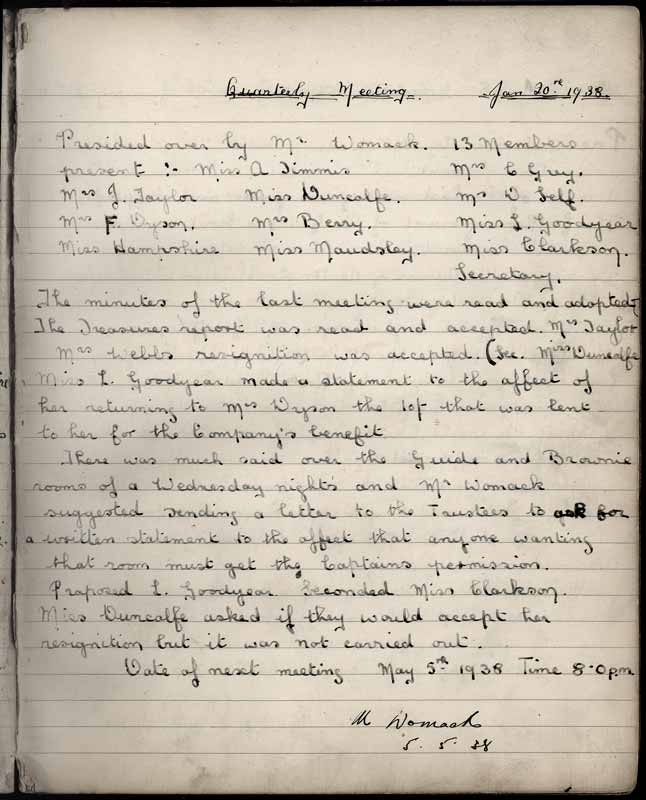 Quarterly Meeting. Jan 20th 1938.
Presided over by Mr Womack. 13 Members
present :- Miss A Timmis Mrs C Grey.
Mrs J. Taylor Miss Duncalfe. Mrs D Self.
Mrs F. Dyson. Mrs Berry. Miss L. Goodyear
Miss Hampshire Miss Maudsley. Miss Clarkson.
Secretary.
The minutes of the last meeting were read and adopted
The Treasures report was read and accepted. Mrs Taylor
Mrs Webbs resignition was accepted. (Sec. Miss Duncalfe
Miss L. Goodyear made a statement to the affect of
her returning to Mrs Dyson the 10/- that was lent
to her for the Company's benefit
There was much said over the Guide and Brownie
rooms of a Wednesday nights and Mr Womack
suggested sending a letter to the Taustees to ask for
a written statement to the affect that anyone wanting
that room must get the Captains permission.
Proposed L. Goodyear. Seconded Miss Clarkson.
Miss Duncalfe asked if they would accept her
resignition but it was not carried out.
Date of next meeting May 5th 1938 Time 8-0pm
M Womack
5. 5. 38